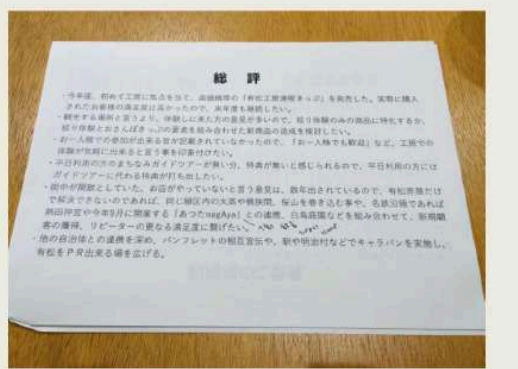 総 評
・今年度、初めて工房に焦点を当て、高価格帯の「有松工房満喫きっぷ」を発売した。実際に購入
されたお客様の満足度は高かったので、来年度も継続したい。
・観光する場所と言うより、体験しに来た方の意見が多いので、絞り体験のみの商品に特化するか、
絞り体験とおさんぽきっぷの要素を組み合わせた新商品の造成を検討したい。
・お一人様での参加が出来る旨が記載されていなかったので、「お一人様でも歓迎」など、工房での
体験が気軽に出来ると言う事を印象付けたい。
・平日利用の方のまちなみガイドツアーが無い分、特典が無いと感じられるので、平日利用の方には
ガイドツアーに代わる特典が打ち出したい。
・街中が閑散としていた、お店がやっていないと言う意見は、数年出されているので、有松営業だけ
で解決できないのであれば、同じ緑区内の大高や桶狭間、桜山を巻き込む事や、名鉄沿線であれば
熱田神宮や今年9月に開業する「あつたnagAya」との連携、白鳥庭園などを組み合わせて、新規顧
客の獲得、リピーターの更なる満足度に繋げたい。
・他の自治体との連携を深め、パンフレットの相互宣伝や、駅や明治村などでキャラバンを実施し、
有松をPR出来る場を広げる。